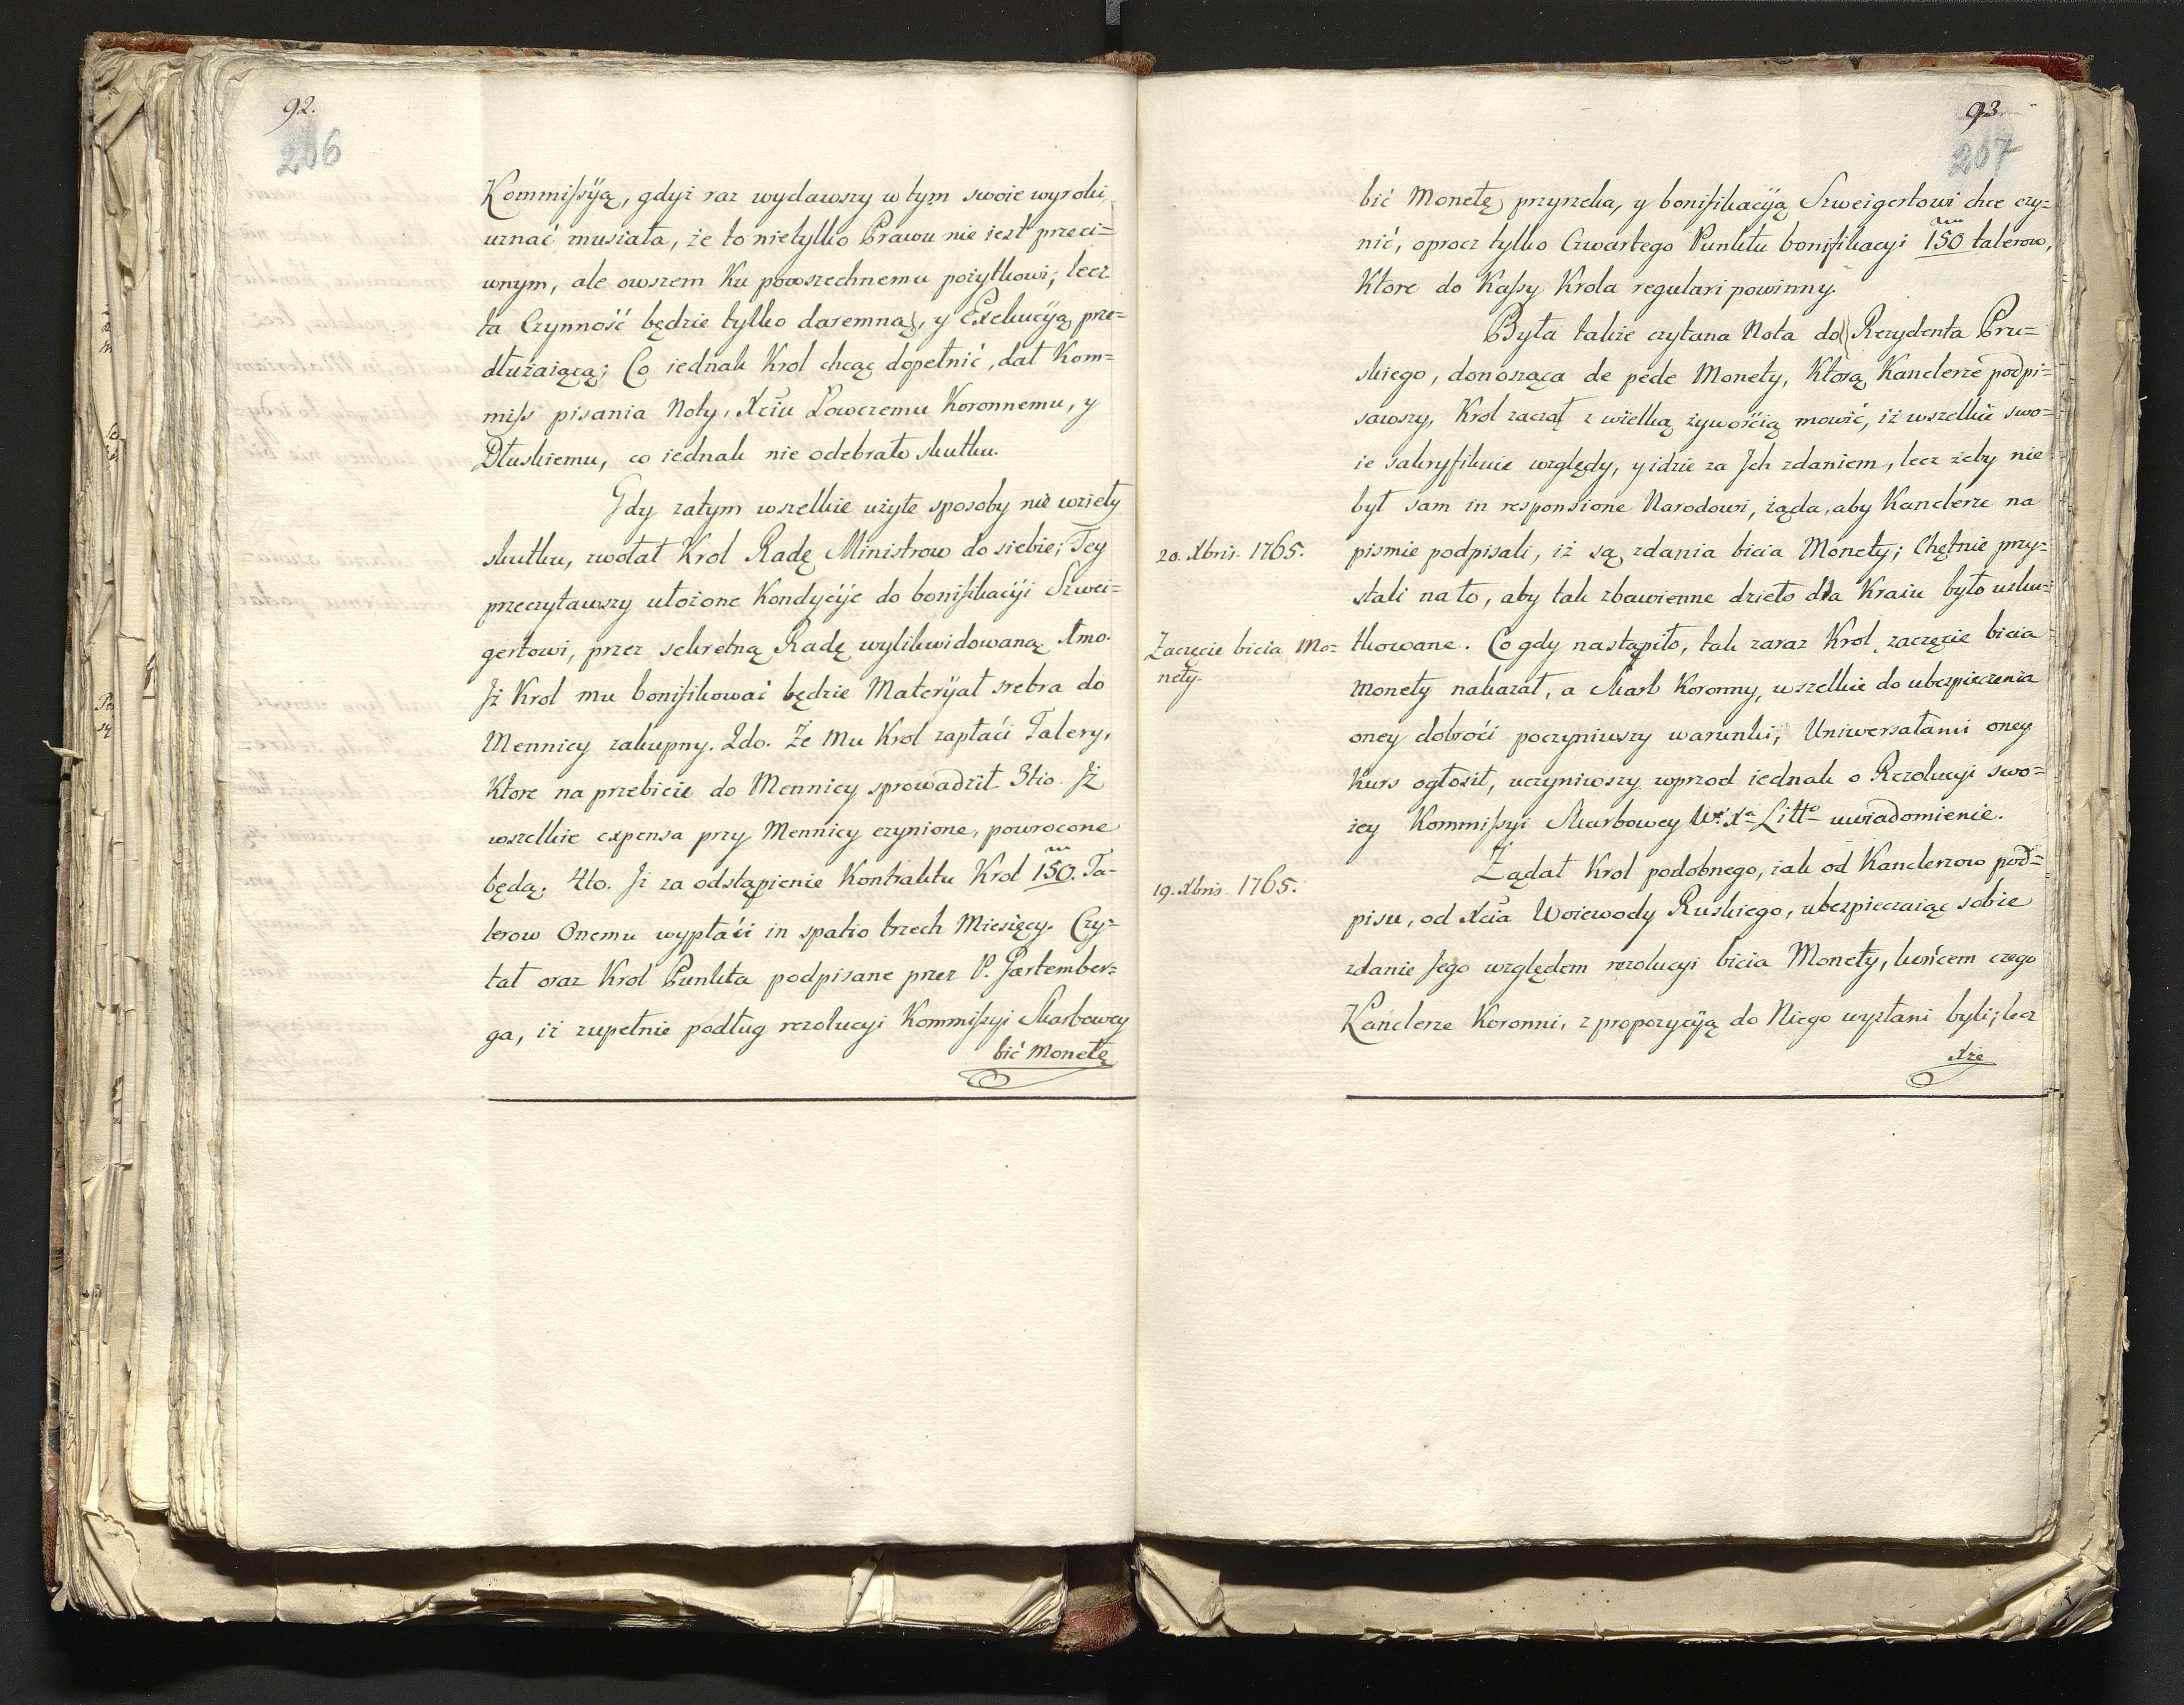 92.
206
Kommissyją, gdyż raz wydawszy w tym swoie wyroki,
uznać musiała, że to nietylko Prawu nie iest przeci=
wnym, ale owszem Ku powszechnemu pożytkowi; lecz
ta Czynność będzie tylko daremną, y Exekucyją prze=
dłużaiącą; Co iednak Krol chcąc dopełnić, dał Kom=
miss pisania Noty, Xciu Łowczemu Koronnemu, y
Dłuskiemu, co iednak nie odebrało skutku.
Gdy zatym wszelkie użyte sposoby nie wzieły
skutku, zwołał Krol Radę Ministrow do siebie; Tey
przeczytawszy ułożone Kondycyje do bonifikacyi Szwei=
gertowi, przez sekretną Radę wylikwidowaną 1mo.
Jż Krol mu bonifikować będzie Materyał srebra do
Mennicy zakupny. 2do. Że Mu Krol zapłaći Talery,
Ktore na przebicie do Mennicy sprowadził. 3tio. Jż
wszelkie expensa przy Mennicy czynione, powrocone
będą. 4to. Jż za odstąpienie Kontraktu Krol 150. Ta-
lerow Onemu wypłaći in spatio trzech Miesięcy. Czy=
tał oraz Krol Punkta podpisane przez P. Gartember=
ga, iż zupełnie podług rezolucyi Kommissyi Skarbowey
bić Monetę
93
207
bić Monetę przyrzeka, y bonifikacyją Szweigertowi chce czy=
nić, oprocz tylko Czwartego Punktu bonifikacyi 150 talerow,
Ktore do Kassy Krola regulari powinny.
Była także czytana Nota do Rezydenta Pru=
skiego, donosząca de pede Monety, Ktorą Kanclerze podpi=
sawszy, Krol zaczął z wielką żywośćią mowić, iż wszelkie swo=
ie sakryfikuie względy, y idzie za Jch zdaniem, lecz żeby nie
był sam in responsione Narodowi, żąda, aby Kanclerze na
20. Xbris. 1765.
pismie podpisali, iż są zdania bicia Monety; Chętnie przy=
stali na to, aby tak zbawienne dzieło dla Kraiu było usku=
Zaczęcie bicia Mo=
nety.
tkowane. Co gdy nastąpiło, tak zaraz Krol zaczęcie bicia
Monety nakazał, a Skarb Koronny, wszelkie do ubezpieczenia
oney dobroći poczyniwszy warunki, Uniwersałami oney
Kurs ogłosił, uczyniwszy wprzod iednak o Rezolucyi swo=
iey Kommissyi Skarbowey Wo Xa Litto uwiadomienie.
Żądał Krol podobnego, iak od Kanclerzow pod=
19. Xbris. 1765.
pisu, od Xcia Woiewody Ruskiego, ubezpieczaiąc sobie
zdanie Jego względem rezolucyi bicia Monety, końcem czego
Kanclerze Koronni, z propozycyją do Niego wysłani byli; lecz
Xże